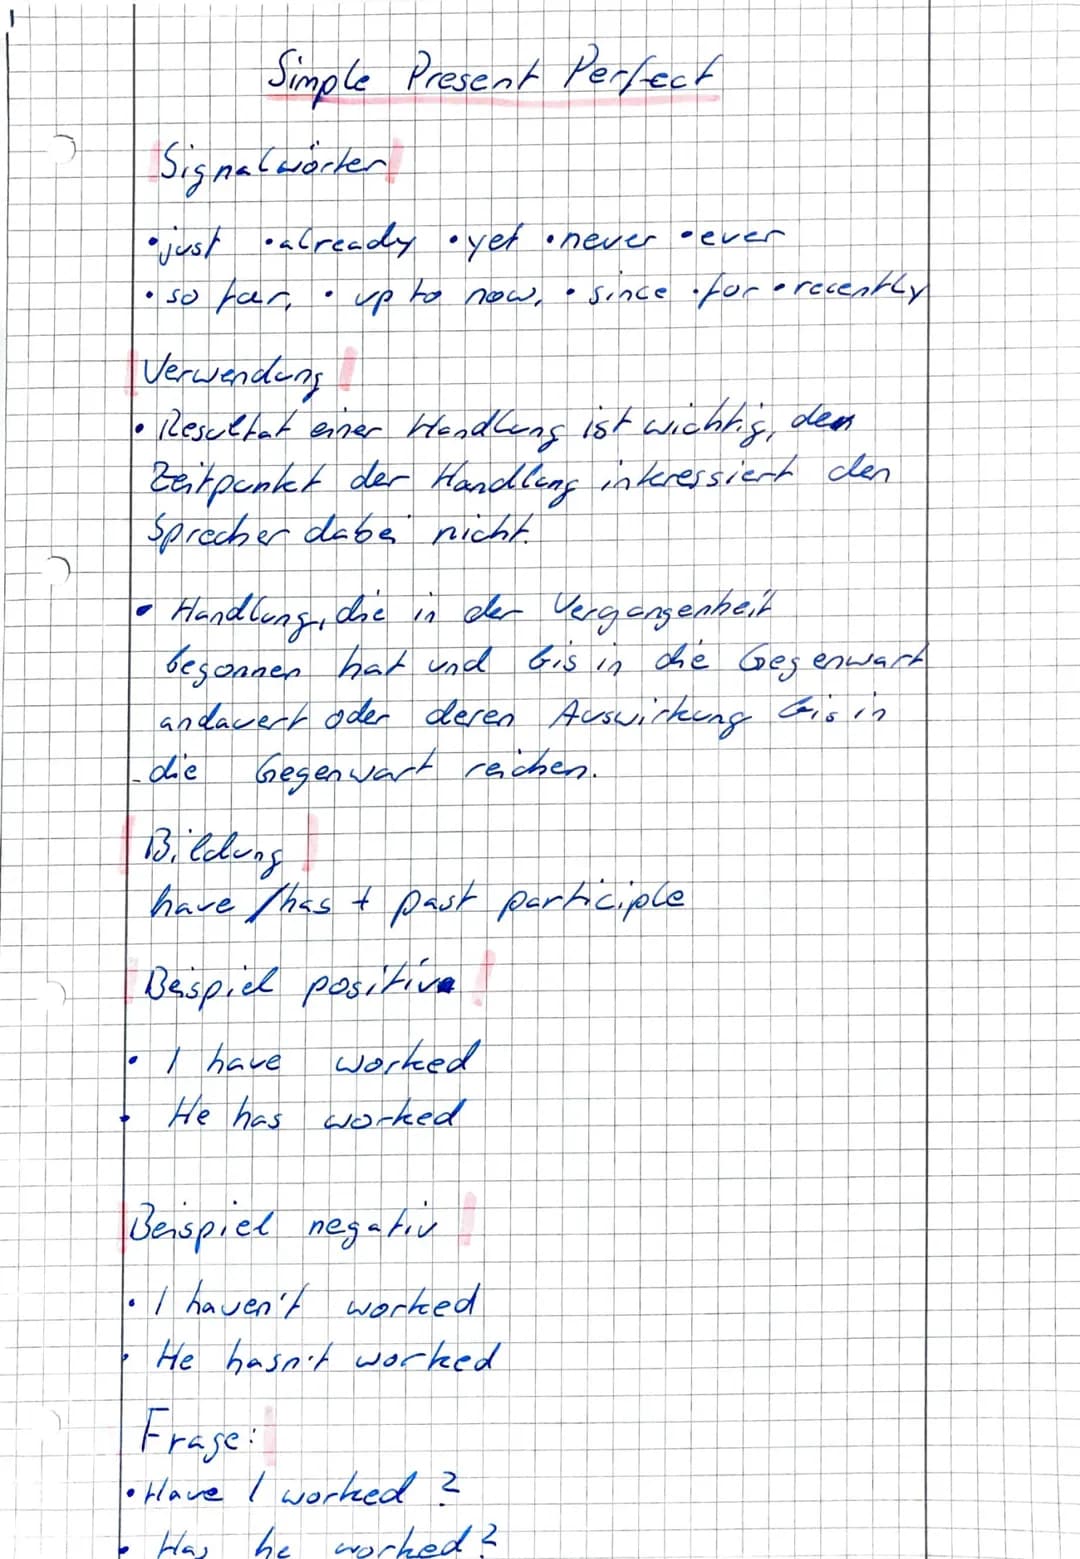 Simple Present Perfect
Signalwörter
• just • already • yet • never • ever
• so far, • up to now, • since • for • recently
Verwendung
• Resultat einer Handlung ist wichtig, den
Zeitpunkt der Handlung interessiert den
Sprecher dabei nicht.
• Handlung, die in der Vergangenheit
begonnen hat und bis in die Gegenwart
andauert oder deren Auswirkung bis in
die Gegenwart reichen.
Bildung
have / has + past participle
Beispiel positive
• I have worked
• He has worked
Beispiel negativ
• I haven't worked
• He hasn't worked
Frage:
• Have I worked?
• Has he worked?